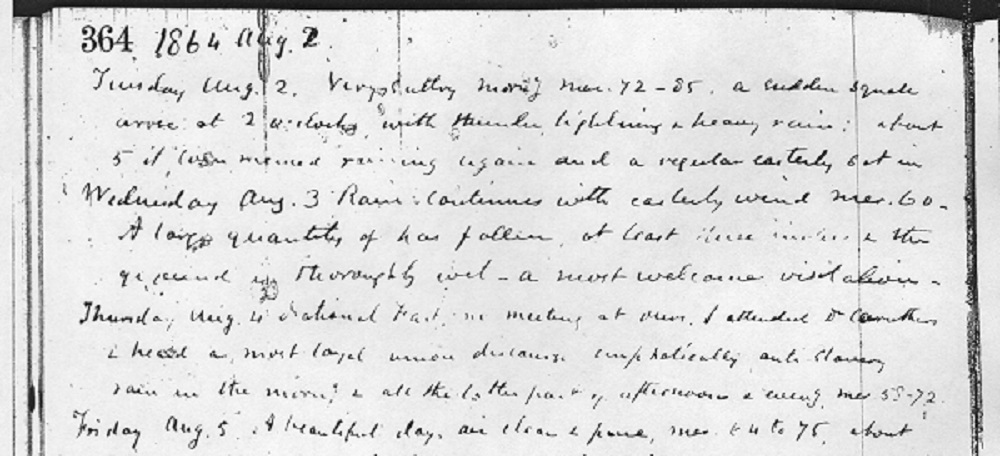 364 1864 Aug. 2
Tuesday Aug. 2. Very Sultry morng mer. 72-85. a sudden squall
arose at 2 o'clock, with thunder lightning & heavy rain; about
5 it commenced raining again and a regular easterly set in
Wednesday Aug. 3 Rain continues with easterly wind mer. 60-
A large quantity of has fallen, at least three inches & the
ground is thoroughly wet - a most welcome visitation-
Thursday Aug. 4 National Fast, no meeting at ours. I attended Dr
& heard a most loyal union discourse emphatically anti slavery
rain in the morng & all the latter part of afternoon & eveng mer 58-72.
Friday Aug. 5. A beautiful day, air clear & pure, mer. 64 to 75, about